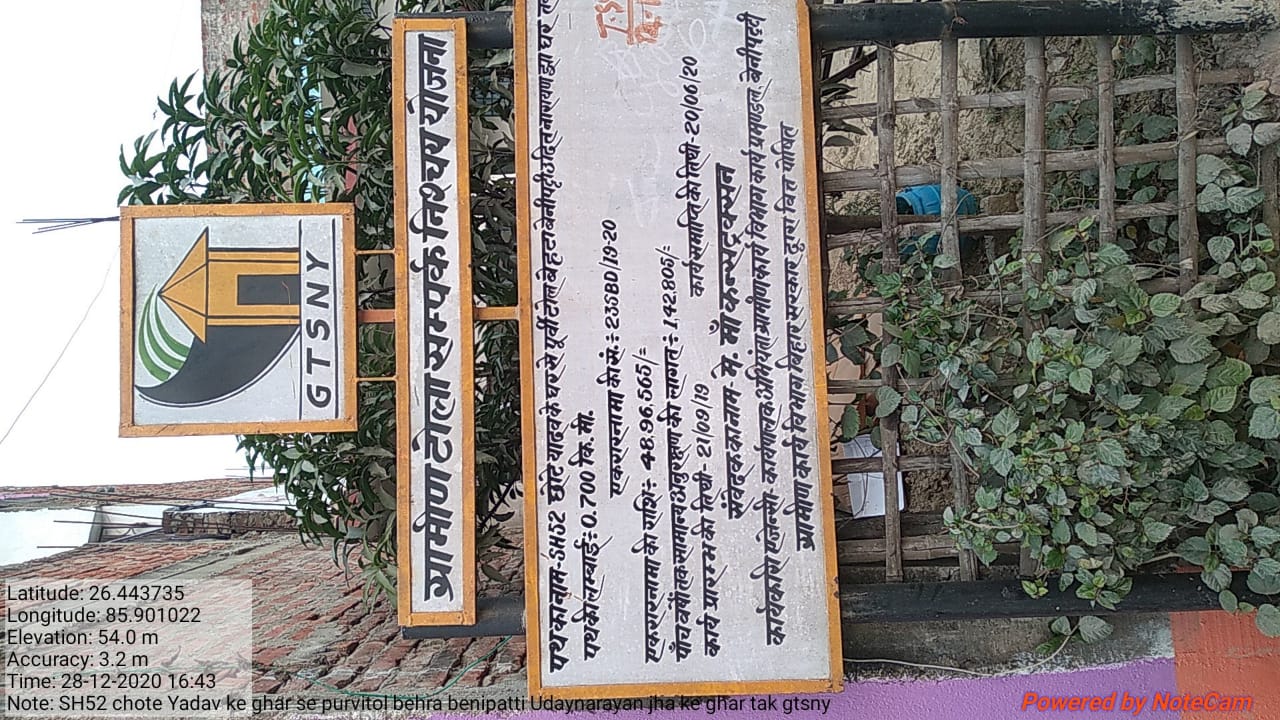 GTSNY
ग्रामीण टोला सम्पर्क निश्चय योजना
पथ का नाम-SH52 छोटे यादव के घर से पूर्वी टोल बेहटा बेनीपट्टी उदित नारायण झा घर तक
पथ की लम्बाई÷0.700 कि. मी.
एकरारनामा की सं.÷235BD/19-20
एकरारनामा की राशि÷ 48,96,565/-
पाँच वर्षों का सामान्य अनुरक्षण की लागत÷142805/-
कार्य प्रारम्भ की तिथी- 21/09/19 कार्य समाप्ति की तिथी-20/06/20
संवेदक का नाम- मे. माँ कन्सट्रक्शन
कार्यकारी एजेन्सी कार्यपालक अभियंता ग्रामीण कार्य विभाग कार्य प्रमण्डल बेनीपट्टी
ग्रामीण कार्य विभाग बिहार सरकार द्वारा वित्त पोषित
Latitude: 26.443735
Longitude: 85.901022
Elevation: 54.0 m
Accuracy: 3.2 m
Time: 28-12-2020 16:43
Note: SH52 chote Yadav ke ghar se purvitol behra benipatti Udaynarayan jha ke ghar tak gtsny
Powered by NoteCam